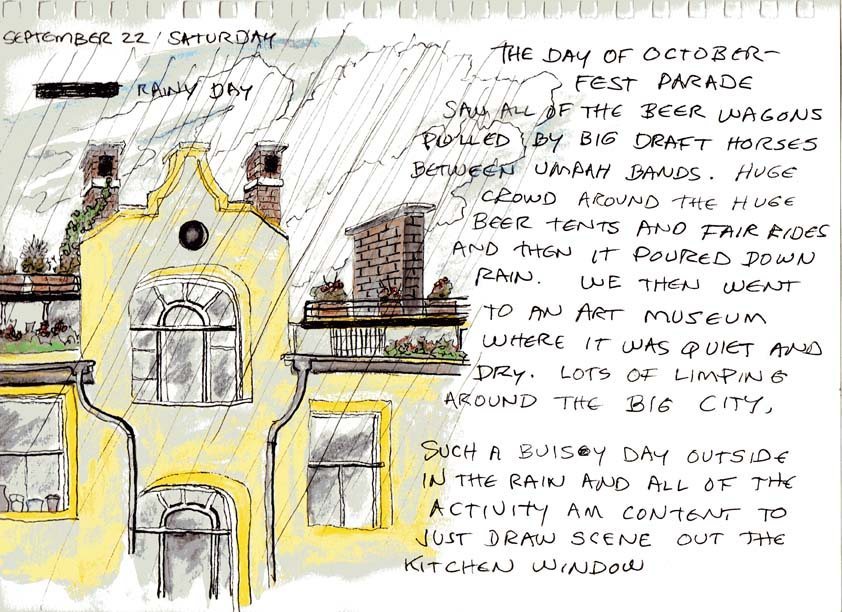 SEPTEMBER 22 / SATURDAY
RAINY DAY
THE DAY OF OCTOBER-
FEST PARADE
SAW ALL OF THE BEER WAGONS
PULLED BY BIG DRAFT HORSES
BETWEEN UMPAH BANDS. HUGE
CROWD AROUND THE HUGE
BEER TENTS AND FAIR RIDES
AND THEN IT POURED DOWN
RAIN. WE THEN WENT
TO AN ART MUSEUM
WHERE IT WAS QUIET AND
DRY. LOTS OF LIMPING
AROUND THE BIG CITY,
SUCH A BUISEY DAY OUTSIDE
IN THE RAIN AND ALL OF THE
ACTIVITY AM CONTENT TO
JUST DRAW SCENE OUT THE
KITCHEN WINDOW